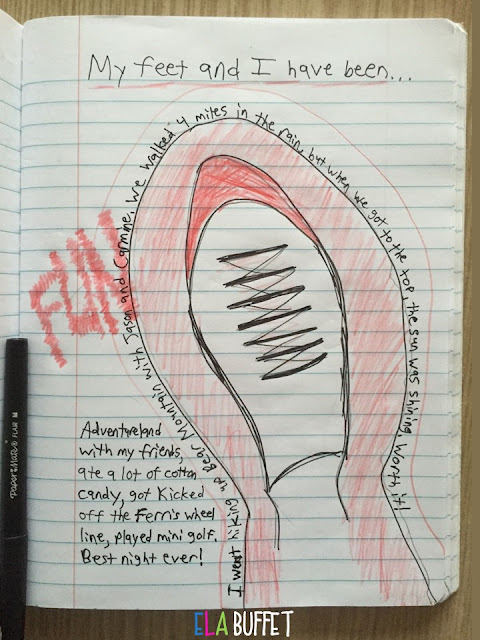 My feet and I have been...
I went hiking up Bear Mountain with Jason and Carmine. We walked 4 miles in the rain, but when we got to the top, the sun was shining. Worth it!
FUN
Adventureland
with my friends,
ate a lot of cotton
candy, got Kicked
off the Ferris wheel
line, played mini golf.
Best night ever!
Paper Mate FLAIR M
ELA BUFFET